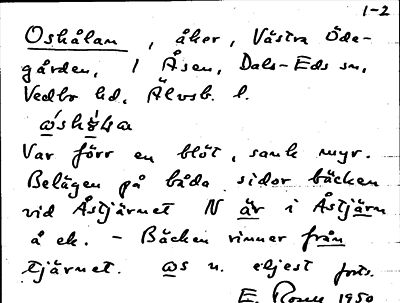 1-2
Oskålan, åker, Västra Öde-
gården, 1 Åsen, Dals-Eds sn,
Vedbo hd, Älvsb. l.
Var förr en blöt, sank myr.
Belägen på båda sidor bäcken
vid Åstjärnet N är i Åstjärn
å ek. - Bäcken rinner från
tjärnet. ws n. eljest forts.
E. 1950